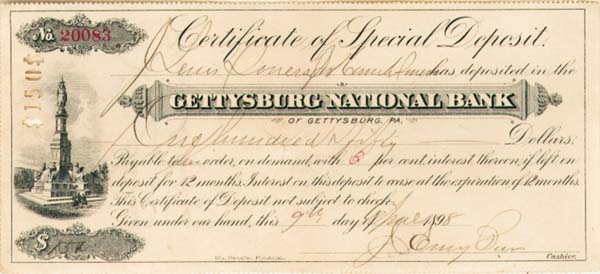 No. 20083
Certificate of Special Deposit.
has deposited in the
GETTYSBURG NATIONAL BANK
OF GETTYSBURG, PA.
One hundred & fifty Dollars.
Payable to order, on demand, with per cent interest thereon, if left on
deposit for 12 months. Interest on this deposit to cease at the expiration of 12 months.
This Certificate of Deposit not subject to check.
Given under our hand, this 9th day 1898
$ 150
Cashier.